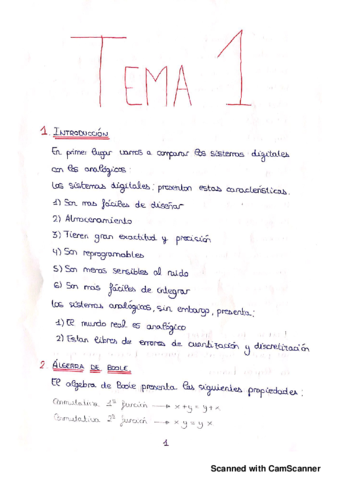 TEMA 1
1 INTRODUCCIÓN
En primer lugar vamos a comparar los sistemas digitales
con los analógicos.
Los sistemas digitales, presentan estas características.
1) Son mas fáciles de diseñar
2) Almacenamiento
3) Tienen gran exactitud y precisión
4) Son reprogramables
5) Son menos sensibles al ruido
6) Son más fáciles de integrar
Los sistemas analógicos, sin embargo, presenta:
1) El mundo real es analógico
2) Estan libres de errores de cuantización y discretización
2 ÁLGEBRA DE BOOLE
El algebra de Boole presenta las siguientes propiedades:
Conmutativa 1ª función → x+y = y+x
Conmutativa 2ª función → x·y = y·x
1
Scanned with CamScanner